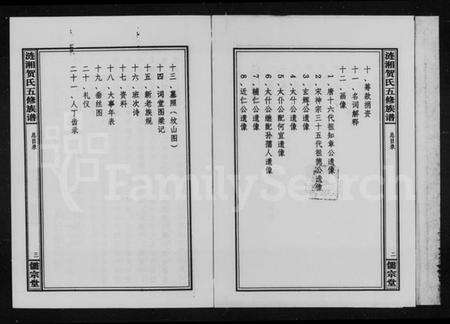 涟湘贺氏五修族谱
总目录
二
儒宗堂
十、筹款捐资
十一、名词解释
十二、画像
1、唐十六代祖知章公遗像
2、宋神宗三十五代祖德公遗像
3、玄辉公遗像
4、大斗公遗像
5、大什公配何宜遗像
6、大什公继配孙孺人遗像
7、辅仁公遗像
8、近仁公遗像
十三、墓照（坟山图）
十四、祠堂图梁记
十五、新老族规
十六、班次诗
十七、资料
十八、大事年表
十九、垂丝图
二十、礼仪
二十一、人丁齿录
涟湘贺氏五修族谱
总目录
三
儒宗堂
FamilySearch